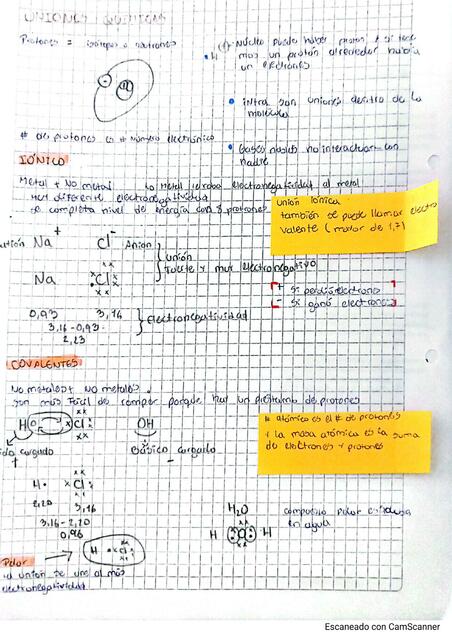 UNIONES QUIMICAS
Protones = isótopos o neutrones
(+) Núcleo puede haber protón y si tene
mos un protón alrededor habia
un electrones
intra son uniones dentro de la
molécula
# de protones es # Número electrónico
Gases nobles no interactuar con
nadie
IÓNICO
Metal + No metal
electronegatividad al metal
muy diferente electronegatividad
se completa nivel de energía con 8 protones
unión iónica
también se puede llamar electro
valente (mayor de 1,7)
Na + Cl - Anion
unión
fuerte y muy electronegativo
Na Cl
+ si perdió electrones
- si ganó electrones
0,93 3,16 } Electronegatividad
3,16 - 0,93
2,23
COVALENTES
No metales + No metales
son más fácil de romper porque hay un préstamo de protones
# atómico es el # de protones
y la masa atómica es la suma
de electrones y protones
H Cl OH
cargado Básico cargado
+ -
H Cl
2,20 3,16
3,16 - 2,20
0,96
H₂O
H O H
compuesto polar
en agua
Polar
H Cl
la unión se une al más
electronegatividad
Escaneado con CamScanner